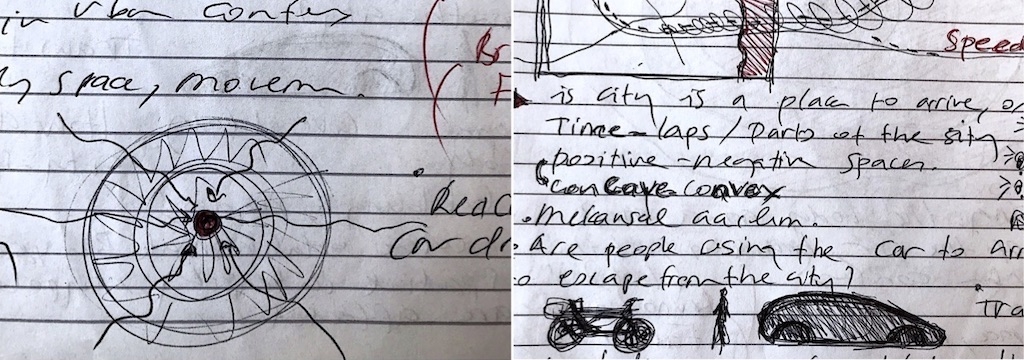 in urban
space, movem.
Br
F
Reac
Car dr
Speed
is city is a place to arrive, o
Time-laps / Parts of the city
positive-negativ spaces.
concave convex
Are people using the car to arr
o escape from the city?
Tra